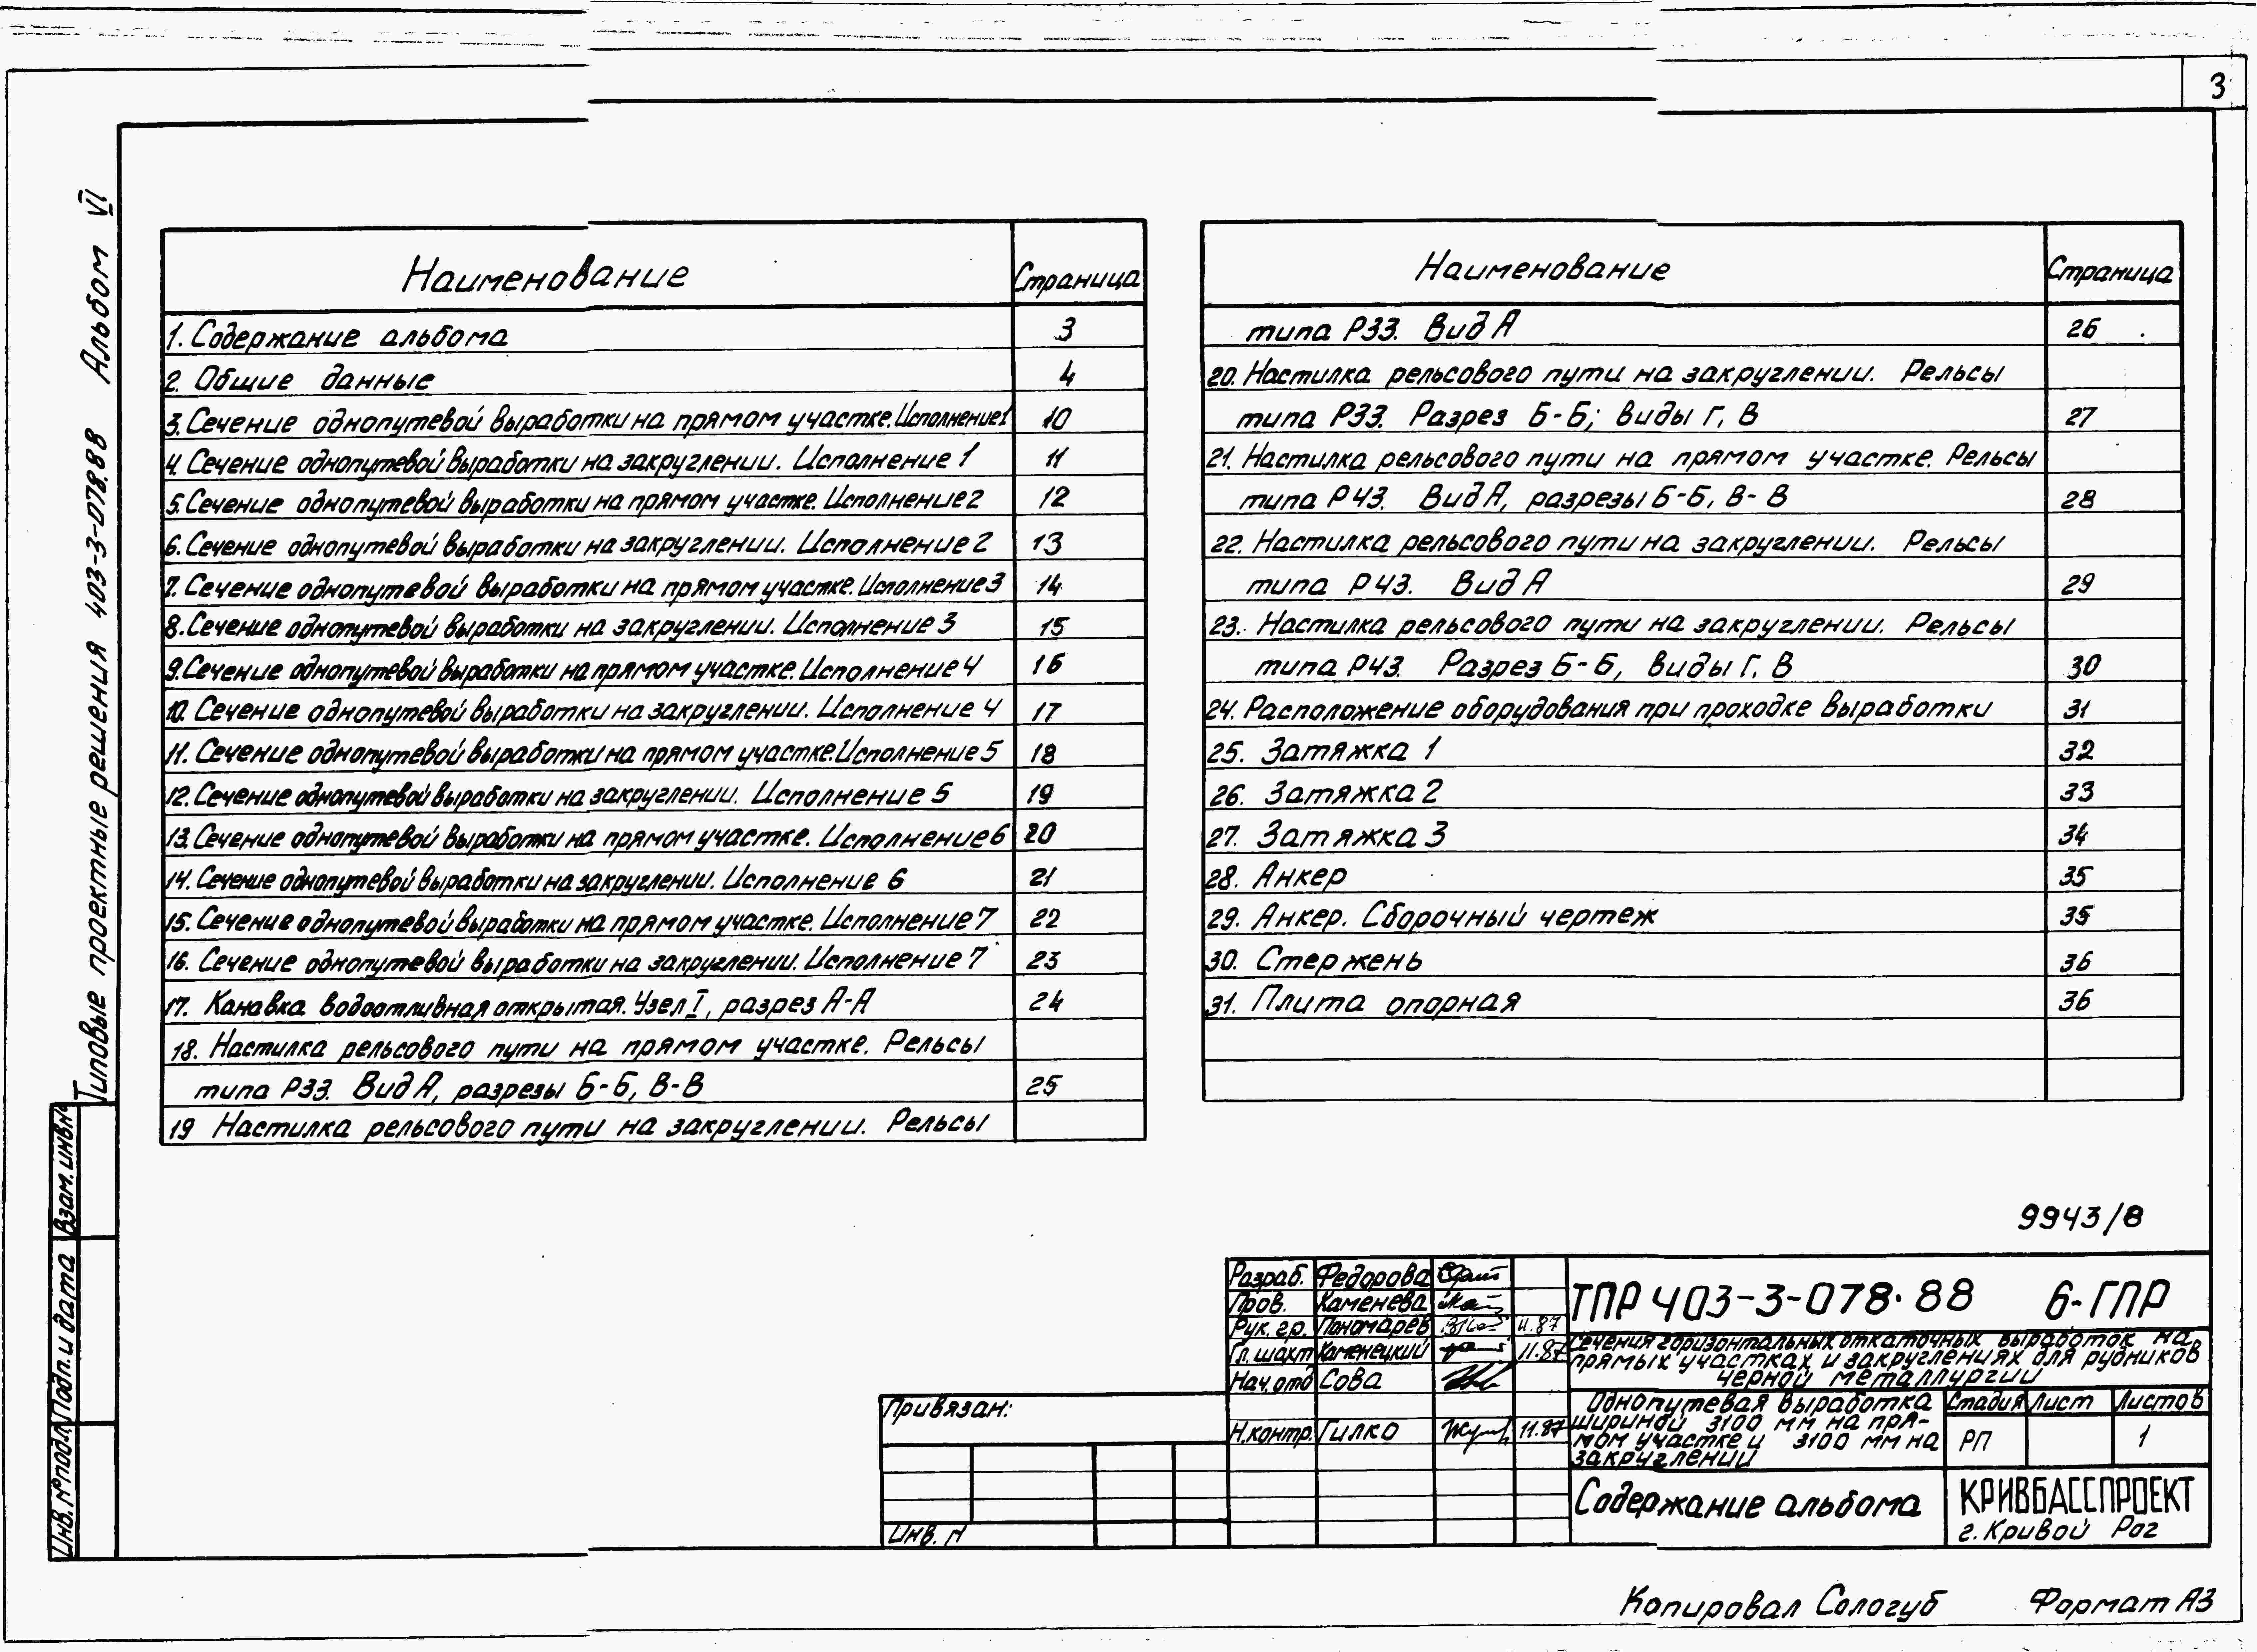 3
Типовые проектные решения 403-3-078.88 Альбом VI
Наименование Страница
1. Содержание альбома 3
2. Общие данные 4
3. Сечение однопутевой выработки на прямом участке. Исполнение 1 10
4. Сечение однопутевой выработки на закруглении. Исполнение 1 11
5. Сечение однопутевой выработки на прямом участке. Исполнение 2 12
6. Сечение однопутевой выработки на закруглении. Исполнение 2 13
7. Сечение однопутевой выработки на прямом участке. Исполнение 3 14
8. Сечение однопутевой выработки на закруглении. Исполнение 3 15
9. Сечение однопутевой выработки на прямом участке. Исполнение 4 16
10. Сечение однопутевой выработки на закруглении. Исполнение 4 17
11. Сечение однопутевой выработки на прямом участке. Исполнение 5 18
12. Сечение однопутевой выработки на закруглении. Исполнение 5 19
13. Сечение однопутевой выработки на прямом участке. Исполнение 6 20
14. Сечение однопутевой выработки на закруглении. Исполнение 6 21
15. Сечение однопутевой выработки на прямом участке. Исполнение 7 22
16. Сечение однопутевой выработки на закруглении. Исполнение 7 23
17. Канавка водоотливная открытая. Узел I, разрез А-А 24
18. Настилка рельсового пути на прямом участке. Рельсы
типа Р33. Вид А, разрезы Б-Б, В-В 25
19 Настилка рельсового пути на закруглении. Рельсы
Наименование Страница
типа Р33. Вид А 26
20. Настилка рельсового пути на закруглении. Рельсы
типа Р33. Разрез Б-Б; виды Г, В 27
21. Настилка рельсового пути на прямом участке. Рельсы
типа Р43. Вид А, разрезы Б-Б, В-В 28
22. Настилка рельсового пути на закруглении. Рельсы
типа Р43. Вид А 29
23. Настилка рельсового пути на закруглении. Рельсы
типа Р43. Разрез Б-Б, виды Г, В 30
24. Расположение оборудования при проходке выработки 31
25. Затяжка 1 32
26. Затяжка 2 33
27. Затяжка 3 34
28. Анкер 35
29. Анкер. Сборочный чертеж 35
30. Стержень 36
31. Плита опорная 36
9943/8
Взам. инв. №
Подп. и дата
Инв. № подл.
Привязан:
Инв. N
Разраб. Федорова
Пров. Каменева
Рук. гр. Пономарев 11.87
Гл. шахт Каменецкий 11.87
Нач. отд Сова
Н.контр. Гилко 11.87
ТПР 403-3-078.88 6-ГПР
Сечения горизонтальных откаточных выработок на
прямых участках и закруглениях для рудников
черной металлургии
Однопутевая выработка
шириной 3100 мм на пря-
мом участке и 3100 мм на
закруглении
Стадия Лист Листов
РП 1
Содержание альбома
КРИВБАССПРОЕКТ
г. Кривой Рог
Копировал Сологуб Формат А3